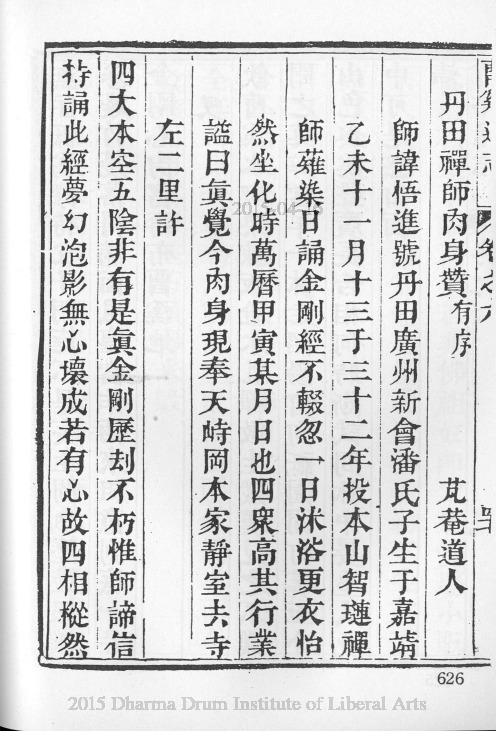 丹田禪師肉身贊有序 芃菴道人
師諱悟進號丹田廣州新會潘氏子生于嘉靖
乙未十一月十三于三十二年投本山智璉禪
師薙染日誦金剛經不輟忽一日沐浴更衣怡
然坐化時萬曆甲寅某月日也四衆高其行業
謚曰眞覺今肉身現奉天峙岡本家靜室去寺
左二里許
四大本空五陰非有是眞金剛歷刦不朽惟師諦信
持誦此經夢幻泡影無心壞成若有心故四相樅然
626
2015 Dharma Drum Institute of Liberal Arts